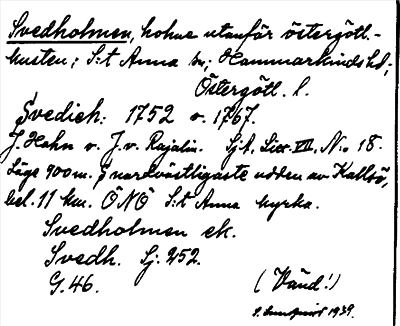 Svedholmen, holme utanför östergötl.-
kusten; S:t Anna sn; Hammarkinds hd;
Östergötl. l.
Svedich: 1752 o. 1767.
J. Hahn o. J. v. Rajalin. Sjk. Litt. VII. N:o 18.
Läge 900 m. f nordvästligaste udden av Kallsö,
bel. 11 km. ÖNÖ S:t Anna kyrka.
Svedholmen ek.
Svedh. Sj. 252.
G. 46.
(Vänd!)
1939.